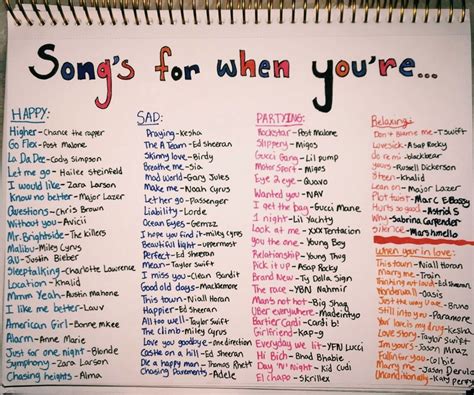 Song's for when you're...
HAPPY:
Higher-Chance the rapper
Go Flex-Post Malone
La Da Dee-Cody Simpson
Let me go-Hailee Steinfeld
I would like-Zara Larson
Know no better-Major Lazer
Questions-Chris Brown
Without you-Avicii
Mr. Brightside-The killers
Malibu-Miley Cyrus
2U-Justin Bieber
Sleeptalking-Charlotte Lawrence
Location-Khalid
Mmm Yeah-Austin Mahone
I like me better-Lauv
American Girl-Bonne Mkee
Alarm-Anne Marie
Just for one night-Blonde
Symphony-Zara Larson
Chasing heights-Alma
SAD:
Praying-Kesha
The A Team-Ed sheeran
Skinny love-Birdy
Breathe me-Sia
Mad world-Gary Jules
Make me-Noah Cyrus
Let her go-Passenger
Liability-Lorde
Ocean Eyes-
I hope you find it-miley cyrus
Beautiful light-uppermost
Perfect-Ed sheeran
Mean-Taylor Swift
I miss you-Clean Bandit
Good old days-Macklemore
This town-Niall Horan
Afterglow-Ed Sheeran
The climb-miley cyrus
Love you goodbye-One direction
Over again-One direction
Castle on a hill-Ed sheeran
Die a happy man-Thomas Rhett
Chasing Pavements-Adele
PARTYING:
Rockstar-Post Malone
Slippery-Migos
Gucci Gang-Lil pump
Motor Sport-Migos
Wanted you-NAV
I get the bag-Gucci Mane
1 night-Lil Yachty
Look at me-XXXTentacion
You the one-Young Boy
Relationship-Young Thug
Pick it up-Asap Rocky
Brand New-Ty Dolla Sign
The race-
Man's not hot-Big Shaq
Uber everywhere-Madeintyo
Bartier Cardi-Cardi b
Girlfriend-Kap-g
Everyday we lit-YFN Lucci
Hi Bich-Bhad Bhabie
Day 'N' Night-Kid Cudi
El chapo-Skrillex
Relaxing:
Don't Blame me-T.Swift
Lovesick-Asap Rocky
do re mi-blackbear
yours-Russell Dickerson
8teen-Khalid
Lean on-Major Lazer
Plot twist-Marc E Bassy
Hurts so good-Astrid S
Why-Sabrina Carpenter
silence-Marshmello
When your in love:
This town-Niall Horan
Marry me-Train
Thinking out loud-Ed Sheeran
Wonderwall-Oasis
Just the way U are-Bruno
Still into you-Paramore
Your love is my drug-Kesha
Love story-Taylor swift
Im yours-Jason Mraz
Fallin for you-Colbie
Marry me-Jason Derulo
Unconditionally-Katy Perry